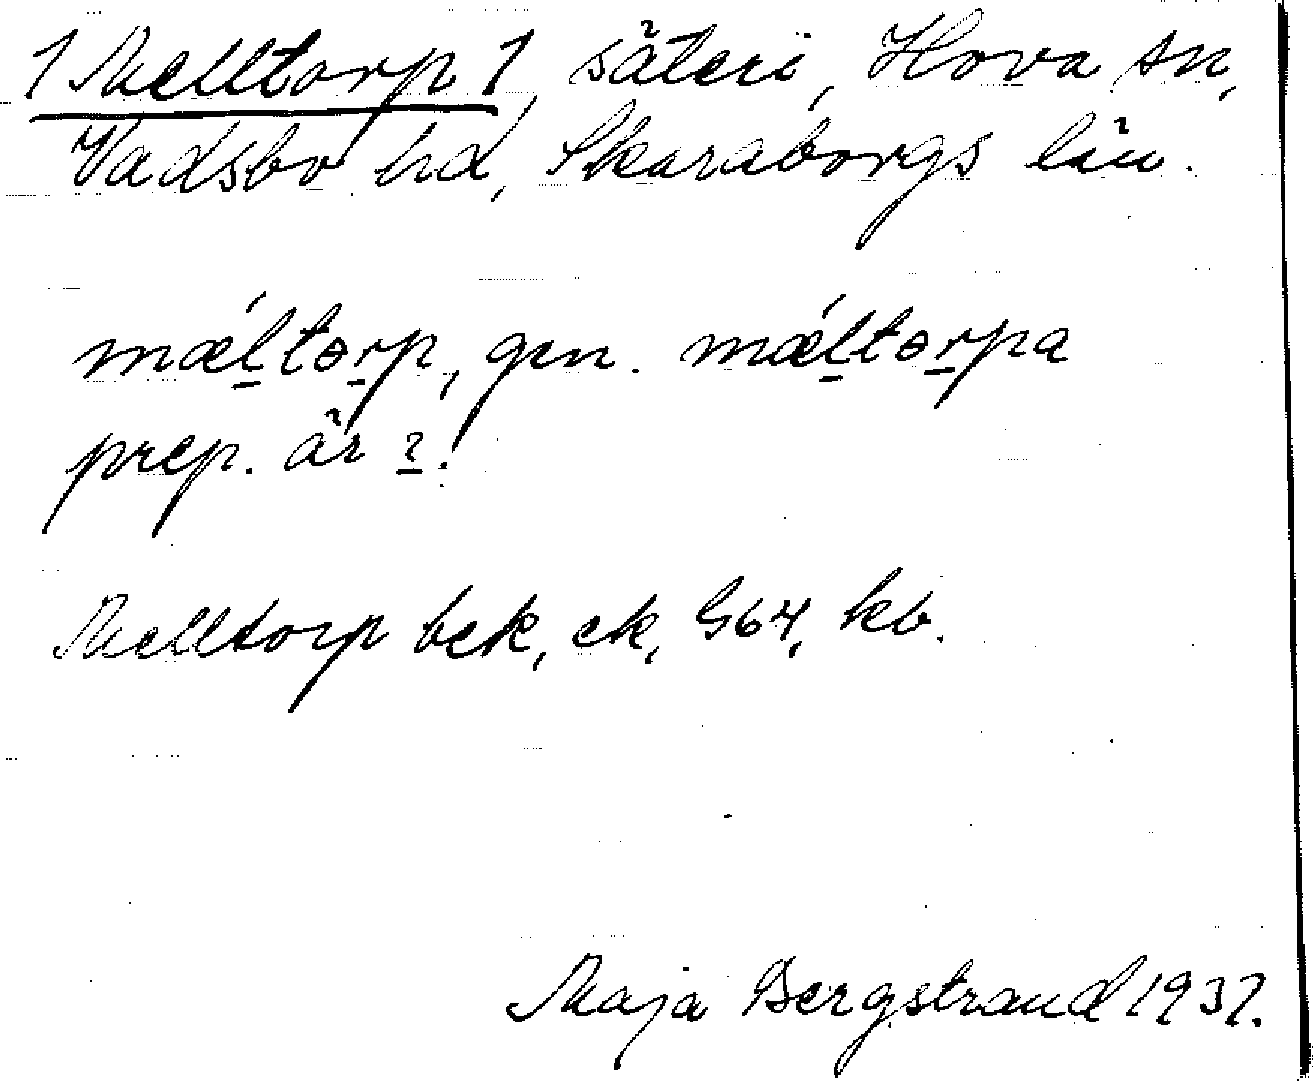 1 Melltorp 1, säteri, Hova sn,
Vadsbo hd, Skaraborgs län.
mǽltɵrp, gen. mǽltɵrpa
prep. är ?.
Melltorp bek, ek, G64, kb.
Maja Bergstrand 1937.